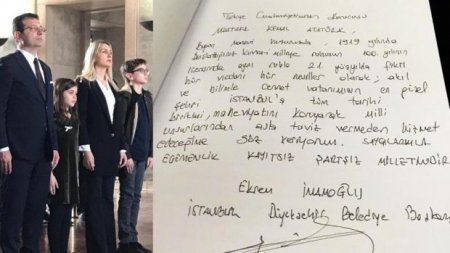 Türkiye Cumhuriyetinin kurucusu
MUSTAFA KEMAL ATATÜRK,
manevi huzurunuzda, 1919 yılında
kuvvai milliye ruhunun 100. yılının
aynı ruhla 21. yüzyılda fikri
hür vicdanı hür nesiller olarak, akıl
ve bilimle cennet vatanımızın en güzel
şehri İSTANBUL'a tüm tarihi
birikimi, maneviyatını koruyarak Milli
asla taviz vermeden hizmet
edeceğime SÖZ veriyorum. SAYGILARIMLA
EGEMENLİK KAYITSIZ ŞARTSIZ MİLLETİNDİR
Ekrem İMAMOĞLU
İSTANBUL Büyükşehir Belediye Başkanı